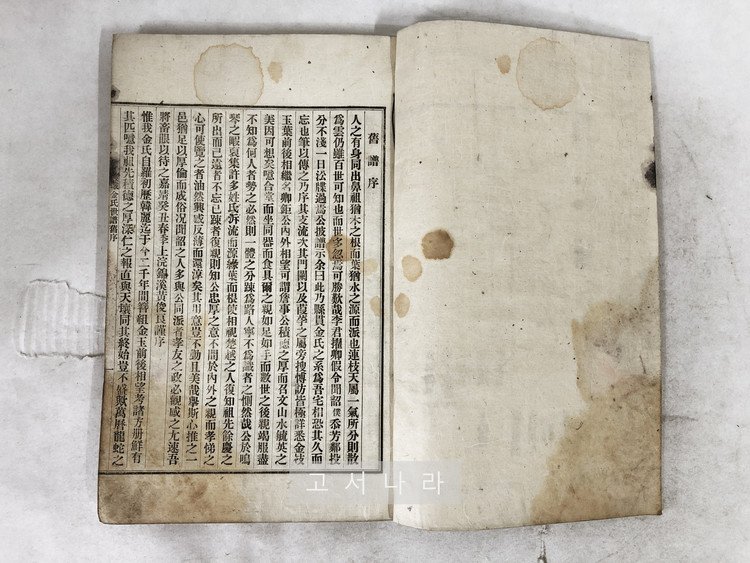 舊譜序
人之有身同出鼻祖猶木之根而葉猶水之源而派也連枝天屬一氣所分則散
爲雲仍雖百世可知也而世多忽焉可勝歎哉李君擢卿假令聞韶僕忝芳鄰投
分不淺一日訟牒過焉公披譜示余曰此乃縣貫金氏之系爲吾宅相恐其久而
忘也筆以傳之乃序其支流次其門闌以及葭莩之屬旁搜博訪皆極詳悉金枝
玉葉前後相繼名卿鉅公內外相望可謂詹事公積德之厚而召文山水毓英之
美因可想矣噫合堂而坐同器而食具爾之親如足如手而數世之後親竭服盡
不知爲何人者勢之必然則一體之分疎爲路人寧不爲識者之惻然哉公於鳴
琴之暇裒集許多姓氏泝流而源緣葉而根使相視楚越之人復知祖先餘慶之
所出而已遠者不忘已踈者復親則知公忠厚之意不間於內外之親而孝悌之
心可使覽之者油然興感反薄而還淳矣其用意豈不勤且美哉擧斯心推之一
邑猶足以厚倫而成俗况聞韶之人多與公同派者孝友之政必觀感之尤速吾
將畜眼以待之嘉靖癸丑春季上浣錦溪黃俊良謹序
惟我金氏自羅初歷韓麗迄于今二千年間簪組金玉前後相望考諸方册鮮有
其匹噫我祖先積德之厚深仁之報直與天壤同其終始豈不歟萬曆龍蛇之
金氏世譜舊序
고서나라